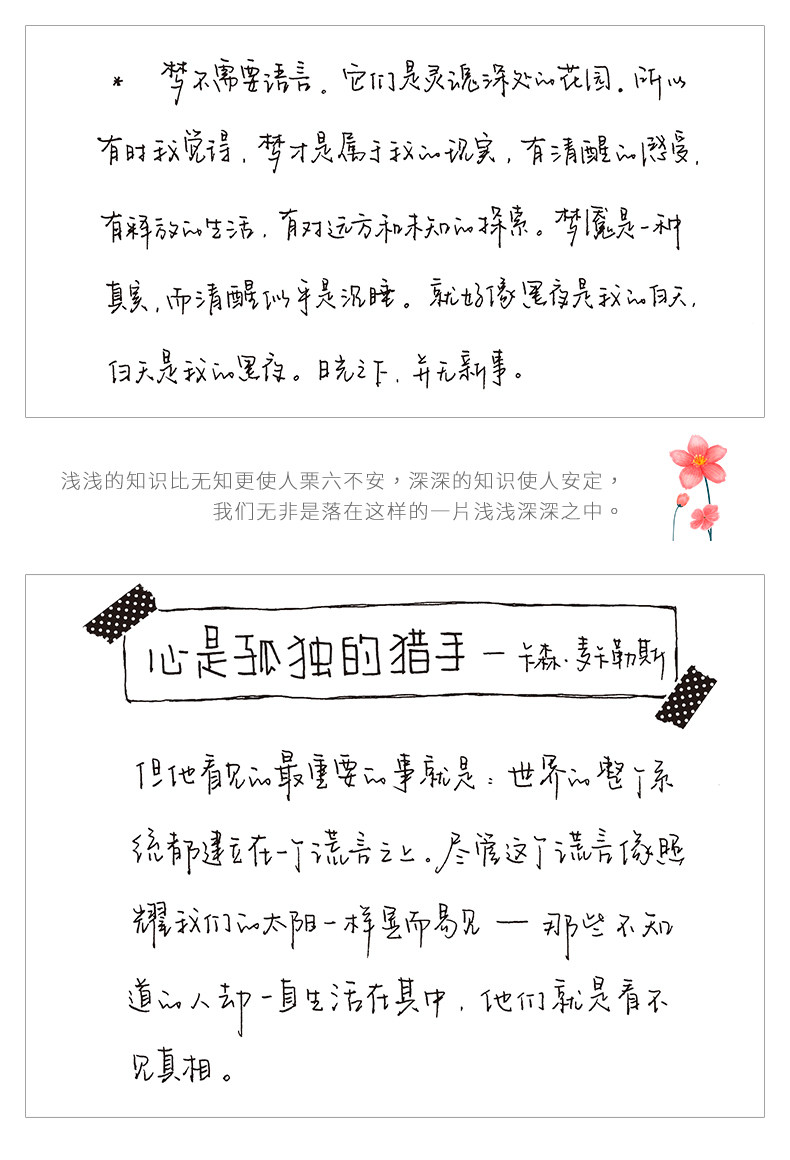 * 梦不需要语言。它们是灵魂深处的花园。所以
有时我觉得，梦才是属于我的现实，有清醒的感受，
有释放的生活，有对远方和未知的探索。梦魇是一种
真实，而清醒似乎是沉睡。就好像黑夜是我的白天，
白天是我的黑夜。日光之下，并无新事。
浅浅的知识比无知更使人栗六不安，深深的知识使人安定，
我们无非是落在这样的一片浅浅深深之中。
心是孤独的猎手 — 卡森·麦卡勒斯
但他看见的最重要的事就是：世界的整个系
统都建立在一个谎言之上。尽管这个谎言像照
耀我们的太阳一样显而易见 — 那些不知
道的人却一直生活在其中，他们就是看不
见真相。